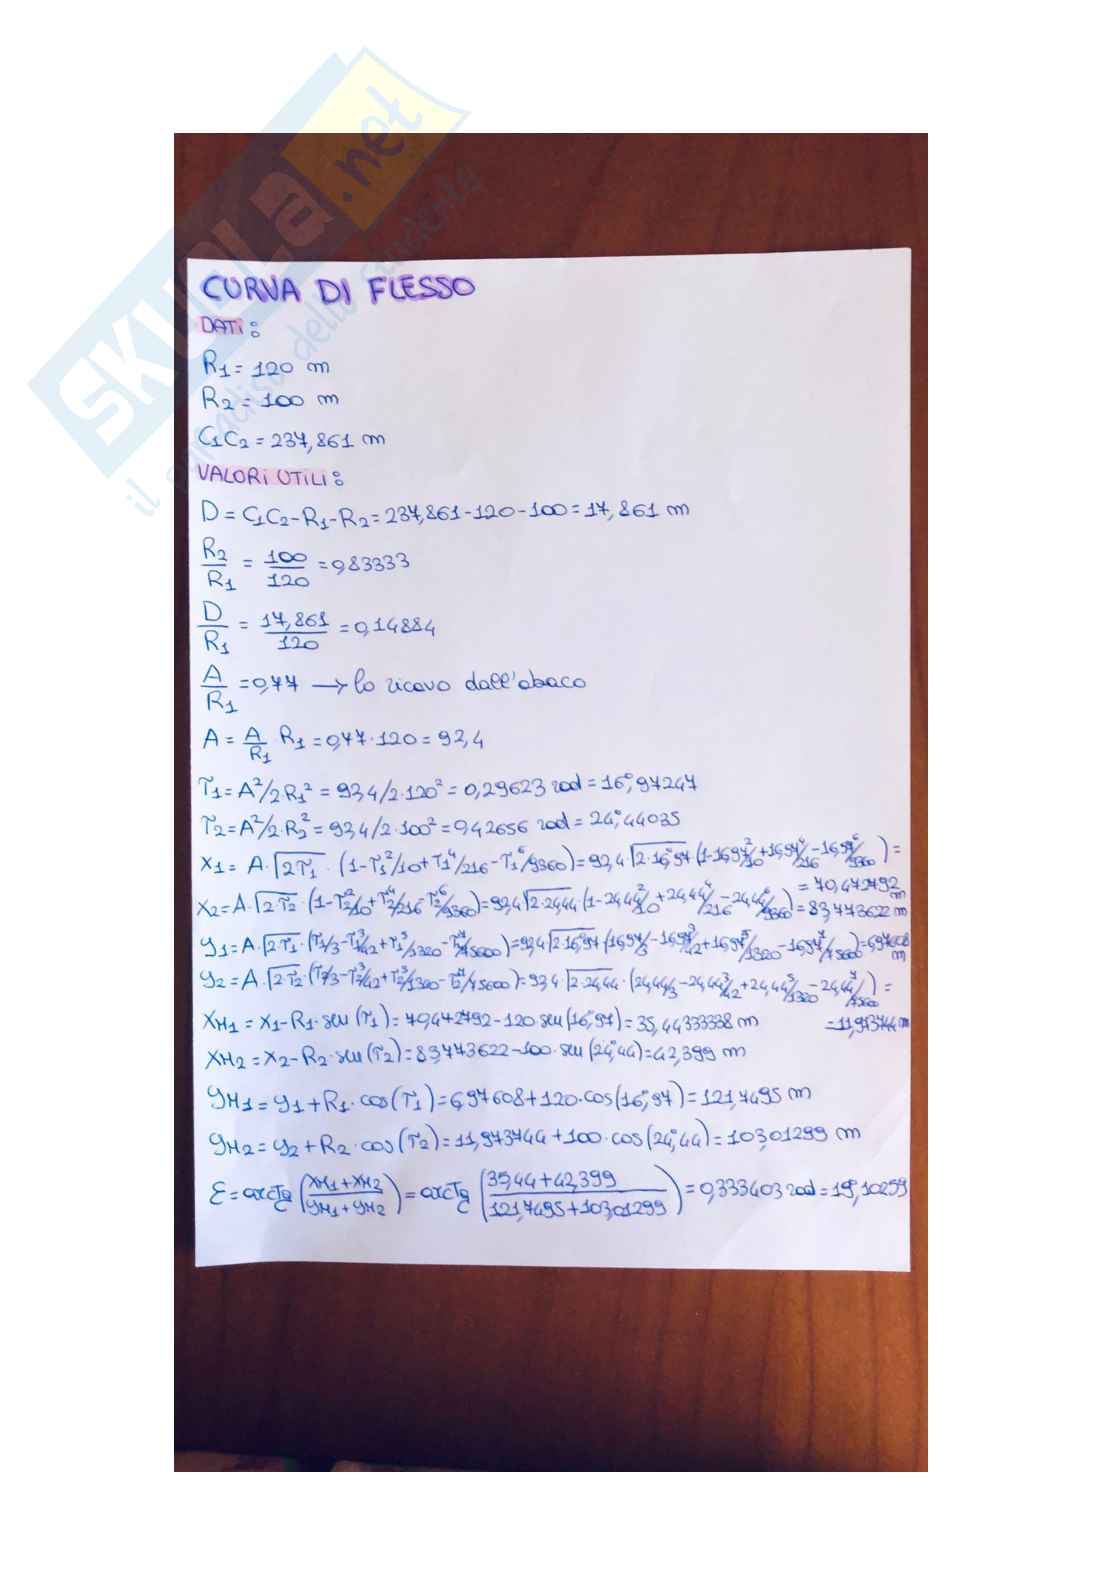 SKUOLA.net
il paradiso dello studente
CURVA DI FLESSO
DATI:
R1 = 120 m
R2 = 100 m
C1C2 = 237,861 m
VALORI UTILI:
D = C1C2-R1-R2 = 237,861-120-100 = 17,861 m
R2/R1 = 100/120 = 0,83333
D/R1 = 17,861/120 = 0,14884
A/R1 = 0,77 → lo ricavo dall'abaco
A = A/R1 · R1 = 0,77·120 = 92,4
τ1 = A²/2·R1² = 92,4/2·120² = 0,29623 rad = 16°,97247
τ2 = A²/2·R2² = 92,4/2·100² = 0,42656 rad = 24°,44035
X1 = A·√2τ1 · (1-τ1²/10+τ1⁴/216-τ1⁶/9360) = 92,4·√2·16°,97 · (1-16,97²/10+16,97⁴/216-16,97⁶/9360) = = 70,472792 m
X2 = A·√2τ2 · (1-τ2²/10+τ2⁴/216-τ2⁶/9360) = 92,4√2·24,44 · (1-24,44²/10+24,44⁴/216-24,44⁶/9360) = 83,773622 m
y1 = A·√2·τ1 · (τ1/3-τ1³/42+τ1⁵/1320-τ1⁷/75600) = 92,4√2·16°,97 · (16,97/3-16,97³/42+16,97⁵/1320-16,97⁷/75600) = 6,97608 m
y2 = A·√2·τ2 · (τ2/3-τ2³/42+τ2⁵/1320-τ2⁷/75600) = 92,4·√2·24,44 · (24,44/3-24,44³/42+24,44⁵/1320-24,44⁷/7560) =
XM1 = X1-R1·sen(τ1) = 70,472792-120 sen(16°,97) = 35,44333338 m = 11,973744 m
XM2 = X2-R2·sen(τ2) = 83,773622-100·sen(24°,44) = 42,399 m
yM1 = y1+R1·cos(τ1) = 6,97608+120·cos(16°,97) = 121,7495 m
yM2 = y2+R2·cos(τ2) = 11,973744+100·cos(24°,44) = 103,01299 m
ε = arcTg (XM1+XM2/yM1+yM2) = arcTg (35,44+42,399/121,7495+103,01299) = 0,333403 rad = 19°,10259